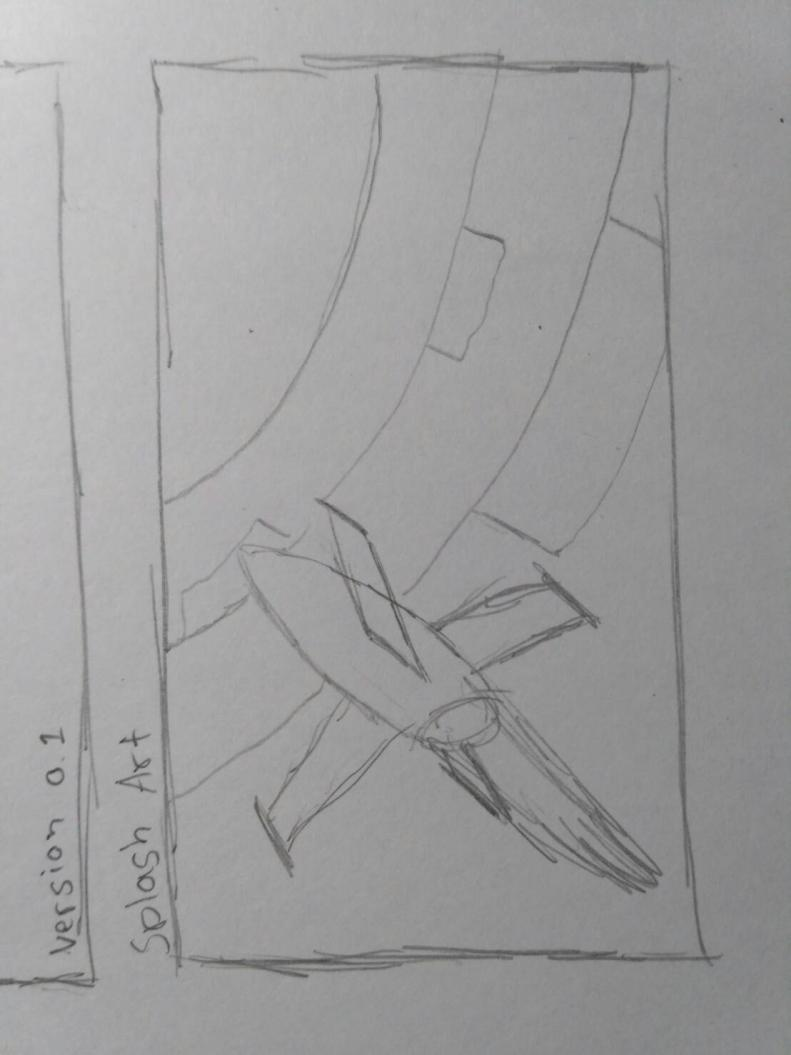 version 0.1
Splash Art